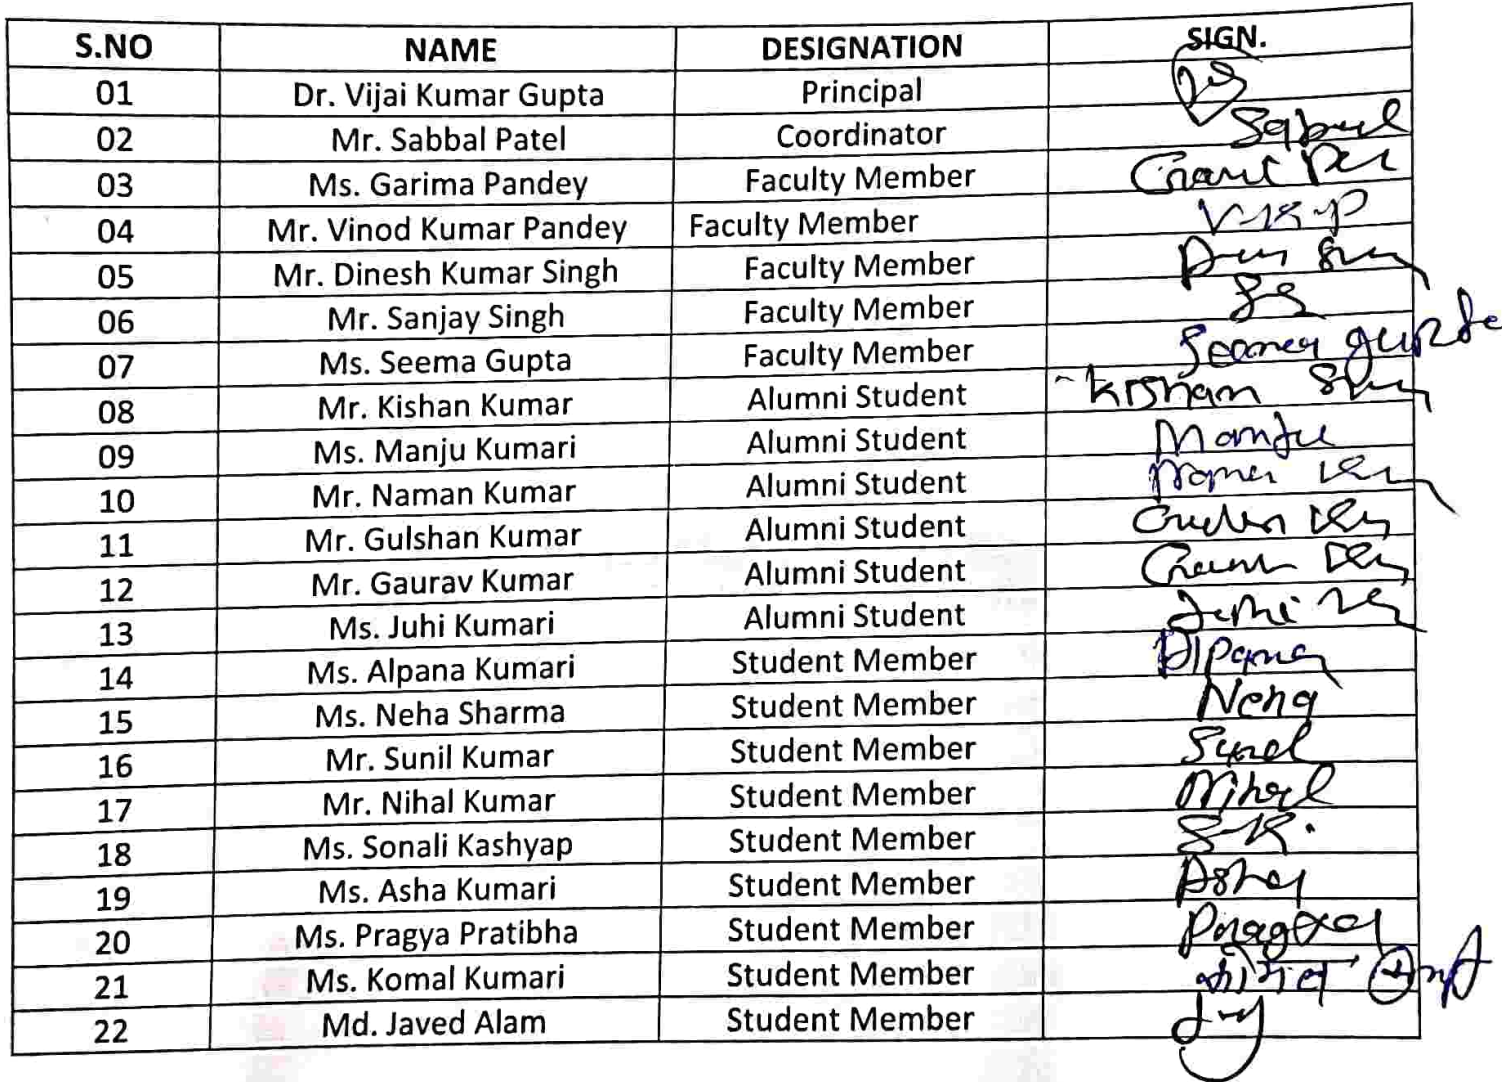 S.NO NAME DESIGNATION SIGN.
01 Dr. Vijai Kumar Gupta Principal
02 Mr. Sabbal Patel Coordinator
03 Ms. Garima Pandey Faculty Member
04 Mr. Vinod Kumar Pandey Faculty Member V.K.P
05 Mr. Dinesh Kumar Singh Faculty Member
06 Mr. Sanjay Singh Faculty Member
07 Ms. Seema Gupta Faculty Member
08 Mr. Kishan Kumar Alumni Student
09 Ms. Manju Kumari Alumni Student Manju
10 Mr. Naman Kumar Alumni Student
11 Mr. Gulshan Kumar Alumni Student
12 Mr. Gaurav Kumar Alumni Student
13 Ms. Juhi Kumari Alumni Student Juhi
14 Ms. Alpana Kumari Student Member Alpana
15 Ms. Neha Sharma Student Member Neha
16 Mr. Sunil Kumar Student Member Sunil
17 Mr. Nihal Kumar Student Member Nihal
18 Ms. Sonali Kashyap Student Member S.K.
19 Ms. Asha Kumari Student Member Asha
20 Ms. Pragya Pratibha Student Member Pragya
21 Ms. Komal Kumari Student Member
22 Md. Javed Alam Student Member